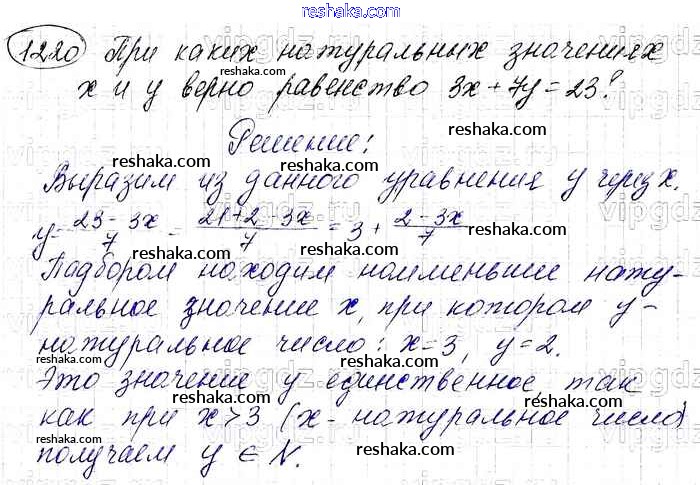 reshaka.com
1220 При каких натуральных значениях
reshaka.com reshaka.com
х и у верно равенство 3х + 7у = 23?
reshaka.com
Решение:
reshaka.com reshaka.com
Выразим из данного уравнения у через х.
reshaka.com
y = 23 - 3x / 7 = 21 + 2 - 3x / 7 = 3 + 2 - 3x / 7
reshaka.com reshaka.com
Подбором находим наименьшие нату-
reshaka.com
ральное значение х, при котором у -
reshaka.com reshaka.com
натуральное число: х = 3, у = 2.
reshaka.com
Это значение у единственное так
reshaka.com reshaka.com
как при х > 3 (х - натуральное число)
reshaka.com
получаем у ∈ N.
reshaka.com reshaka.com